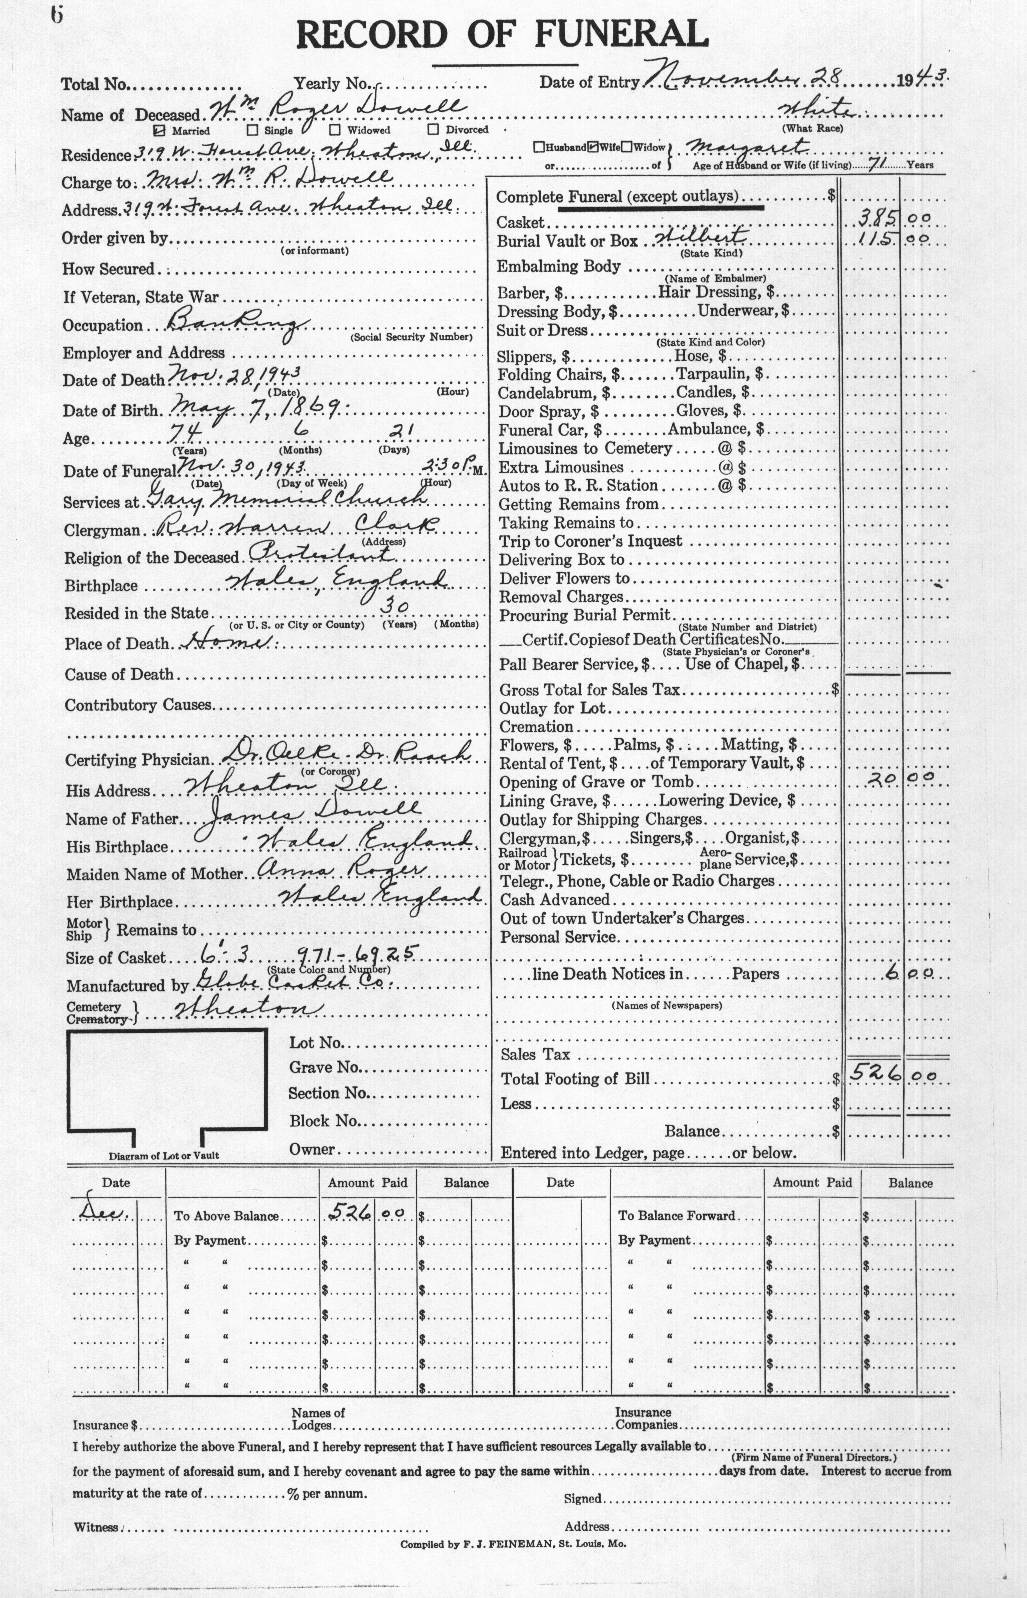 6
RECORD OF FUNERAL
Total No................ Yearly No................ Date of Entry November 28 1943.
Name of Deceased. Wm Roger Dowell White
☑ Married ☐ Single ☐ Widowed ☐ Divorced (What Race)
Residence 319 W. Forest Ave, Wheaton, Ill. ☐Husband ☑Wife ☐Widow } Margaret
or..................of } Age of Husband or Wife (if living)....71....Years
Charge to: Mrs. Wm R. Dowell
Address. 319 W. Forest Ave. Wheaton Ill.
Order given by
(or informant)
How Secured
If Veteran, State War
Occupation. Banking
(Social Security Number)
Employer and Address
Date of Death Nov. 28, 1943
(Date) (Hour)
Date of Birth. May 7, 1869.
Age 74 6 21
(Years) (Months) (Days)
Date of Funeral Nov. 30, 1943 2:30 P.M.
(Date) (Day of Week) (Hour)
Services at Gary Memorial Church
Clergyman Rev. Warren Clark
(Address)
Religion of the Deceased Protestant
Birthplace Wales, England
Resided in the State 30
(or U. S. or City or County) (Years) (Months)
Place of Death. Home.
Cause of Death
Contributory Causes
Certifying Physician. Dr. Oelke - Dr. Raach
(or Coroner)
His Address Wheaton Ill.
Name of Father James Dowell
His Birthplace Wales England
Maiden Name of Mother Anna Roger
Her Birthplace Wales England
Motor Ship } Remains to
Size of Casket 6'-3 971-6925
(State Color and Number)
Manufactured by Globe Casket Co.
Cemetery Crematory } Wheaton
Lot No.
Grave No.
Section No.
Block No.
Owner
Diagram of Lot or Vault
Complete Funeral (except outlays) $
Casket 385 00
Burial Vault or Box Wilbert 115 00
(State Kind)
Embalming Body
(Name of Embalmer)
Barber, $ Hair Dressing, $
Dressing Body, $ Underwear, $
Suit or Dress
(State Kind and Color)
Slippers, $ Hose, $
Folding Chairs, $ Tarpaulin, $
Candelabrum, $ Candles, $
Door Spray, $ Gloves, $
Funeral Car, $ Ambulance, $
Limousines to Cemetery @ $
Extra Limousines @ $
Autos to R. R. Station @ $
Getting Remains from
Taking Remains to
Trip to Coroner's Inquest
Delivering Box to
Deliver Flowers to
Removal Charges
Procuring Burial Permit
(State Number and District)
Certif. Copies of Death Certificates No.
(State Physician's or Coroner's
Pall Bearer Service, $ Use of Chapel, $
Gross Total for Sales Tax $
Outlay for Lot
Cremation
Flowers, $ Palms, $ Matting, $
Rental of Tent, $ of Temporary Vault, $
Opening of Grave or Tomb 20 00
Lining Grave, $ Lowering Device, $
Outlay for Shipping Charges
Clergyman, $ Singers, $ Organist, $
Railroad or Motor } Tickets, $ Aeroplane Service, $
Telegr., Phone, Cable or Radio Charges
Cash Advanced
Out of town Undertaker's Charges
Personal Service
line Death Notices in Papers 6 00
(Names of Newspapers)
Sales Tax
Total Footing of Bill $ 526 00
Less $
Balance $
Entered into Ledger, page......or below.
Date Amount Paid Balance Date Amount Paid Balance
Dec. To Above Balance 526 00 $ To Balance Forward $
By Payment $ $ By Payment $ $
" " $ $ " " $ $
" " $ $ " " $ $
" " $ $ " " $ $
" " $ $ " " $ $
" " $ $ " " $ $
" " $ $ " " $ $
Insurance $ Names of Lodges Insurance Companies
I hereby authorize the above Funeral, and I hereby represent that I have sufficient resources Legally available to
(Firm Name of Funeral Directors.)
for the payment of aforesaid sum, and I hereby covenant and agree to pay the same within days from date. Interest to accrue from
maturity at the rate of % per annum.
Signed
Witness Address
Compiled by F. J. FEINEMAN, St. Louis, Mo.